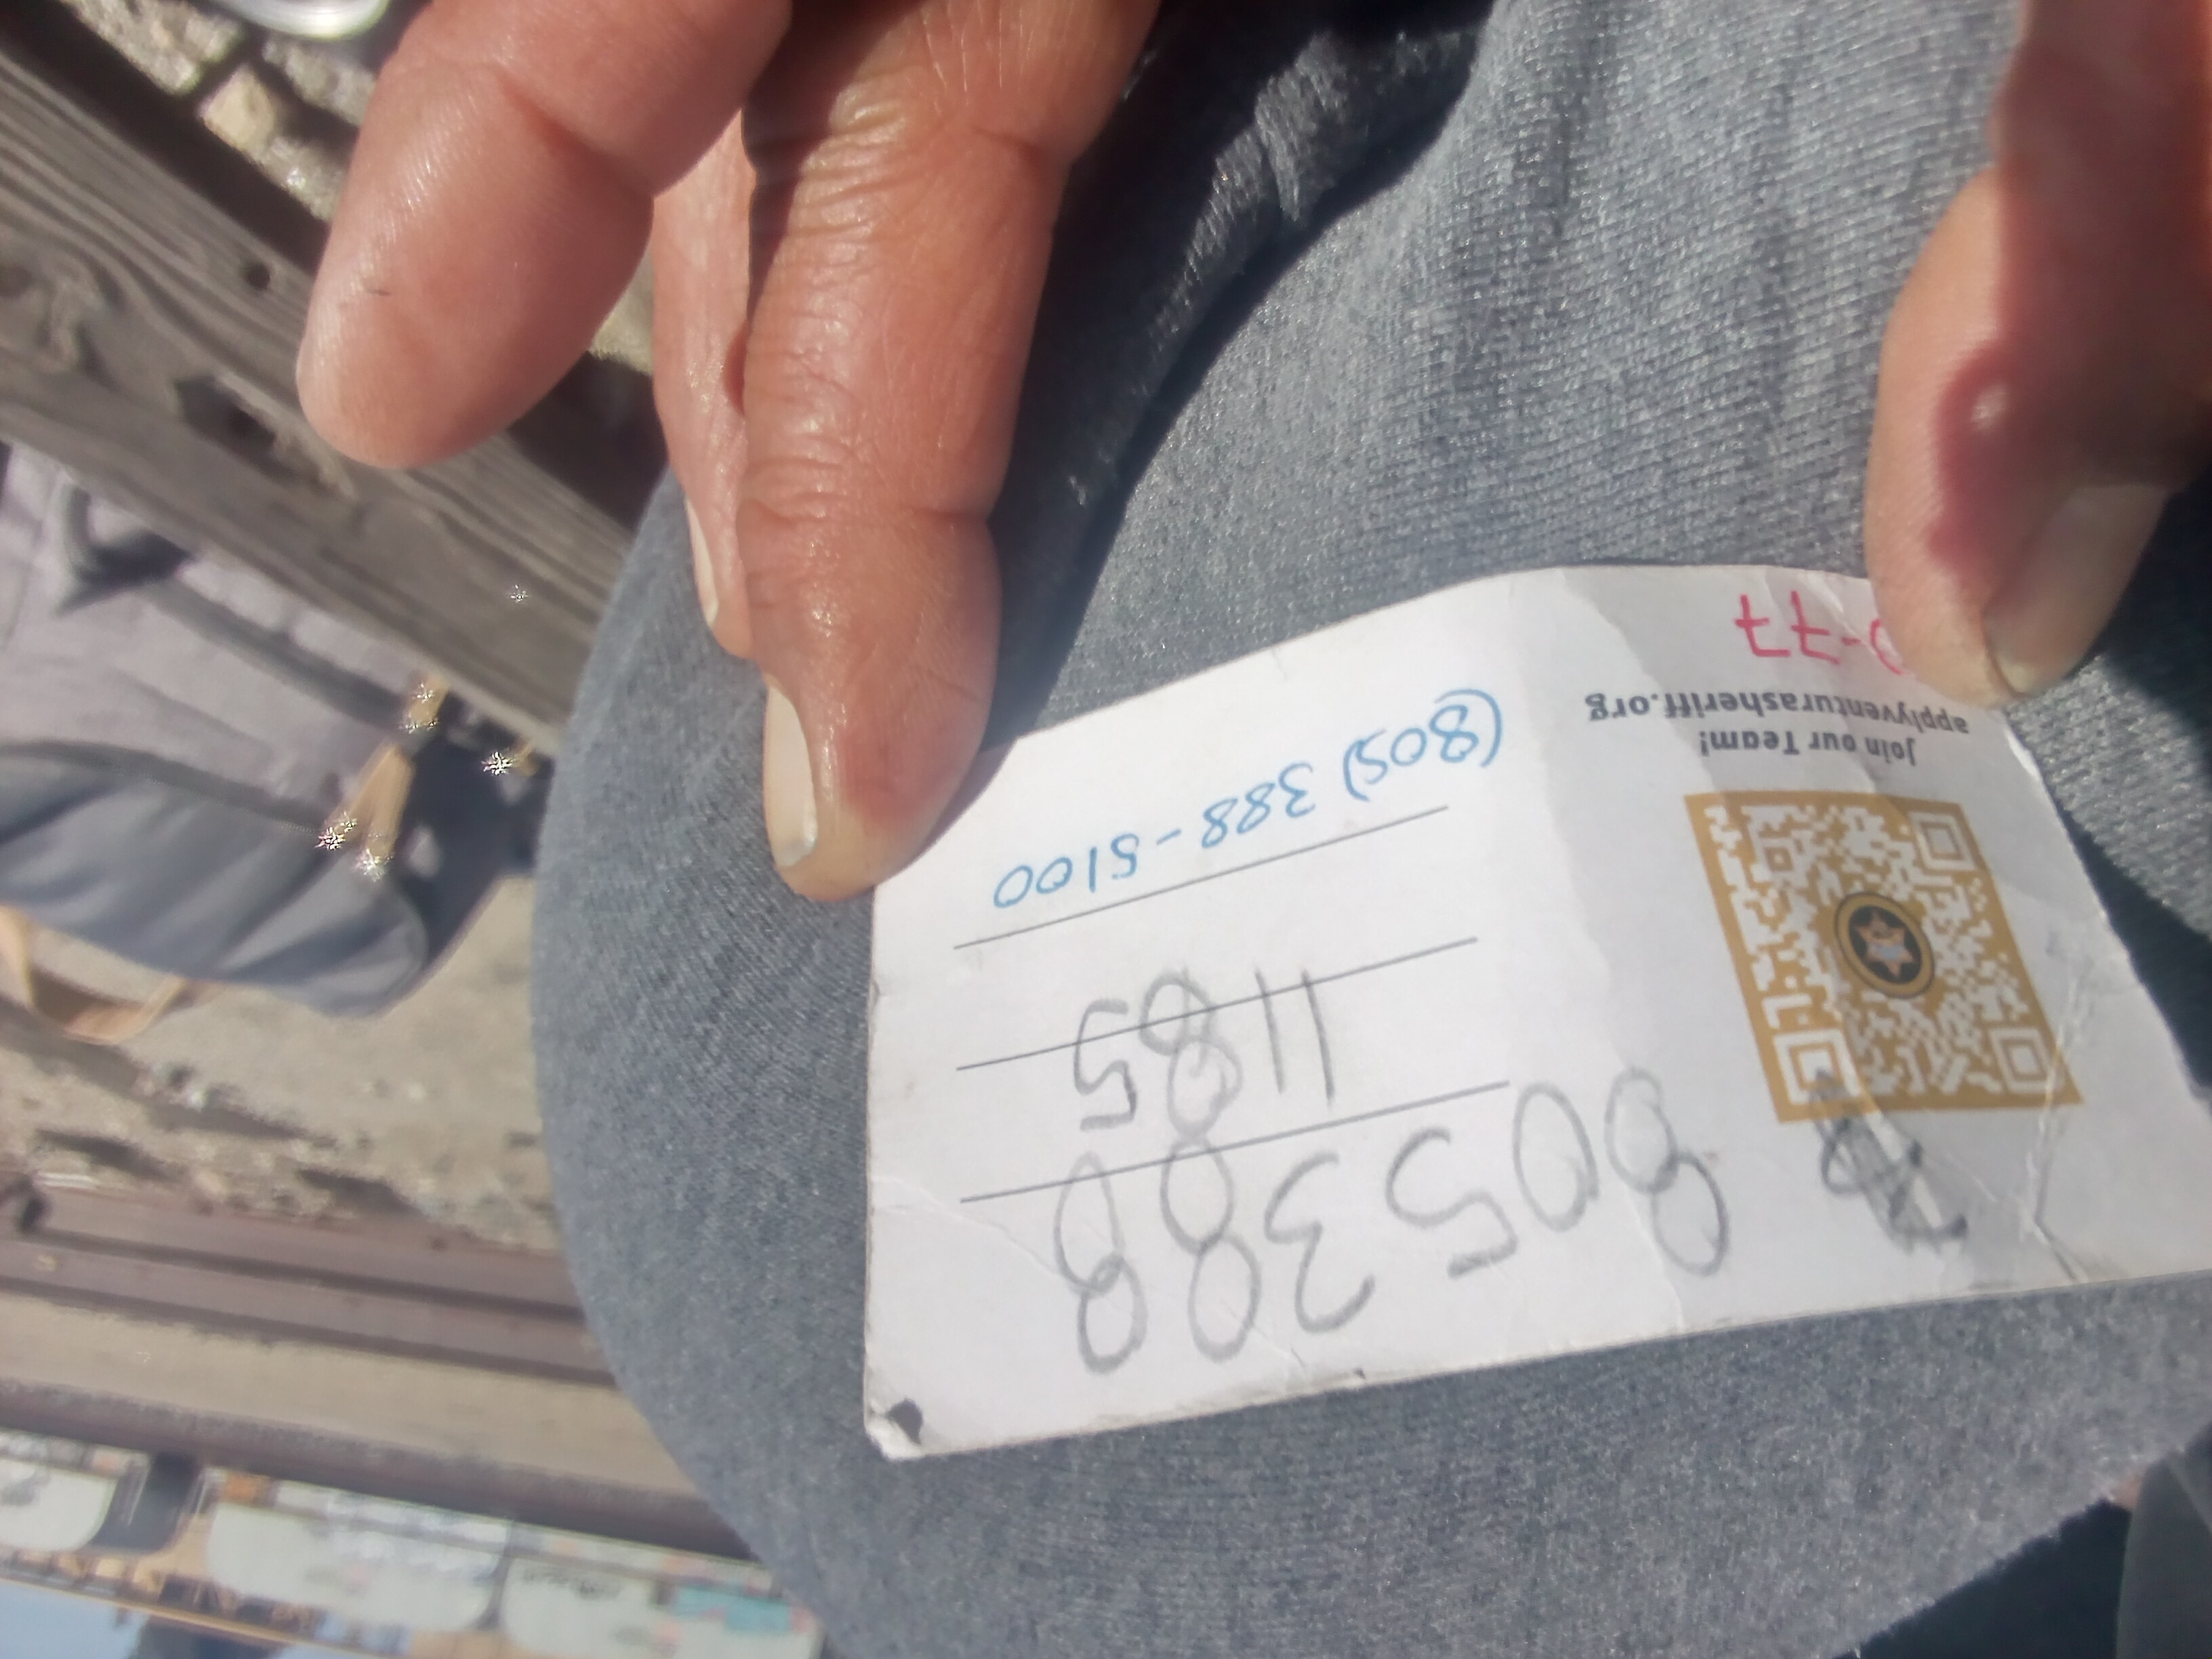 805388
1185
(805) 388-5100
Join our Team!
applyventurasheriff.org
-77